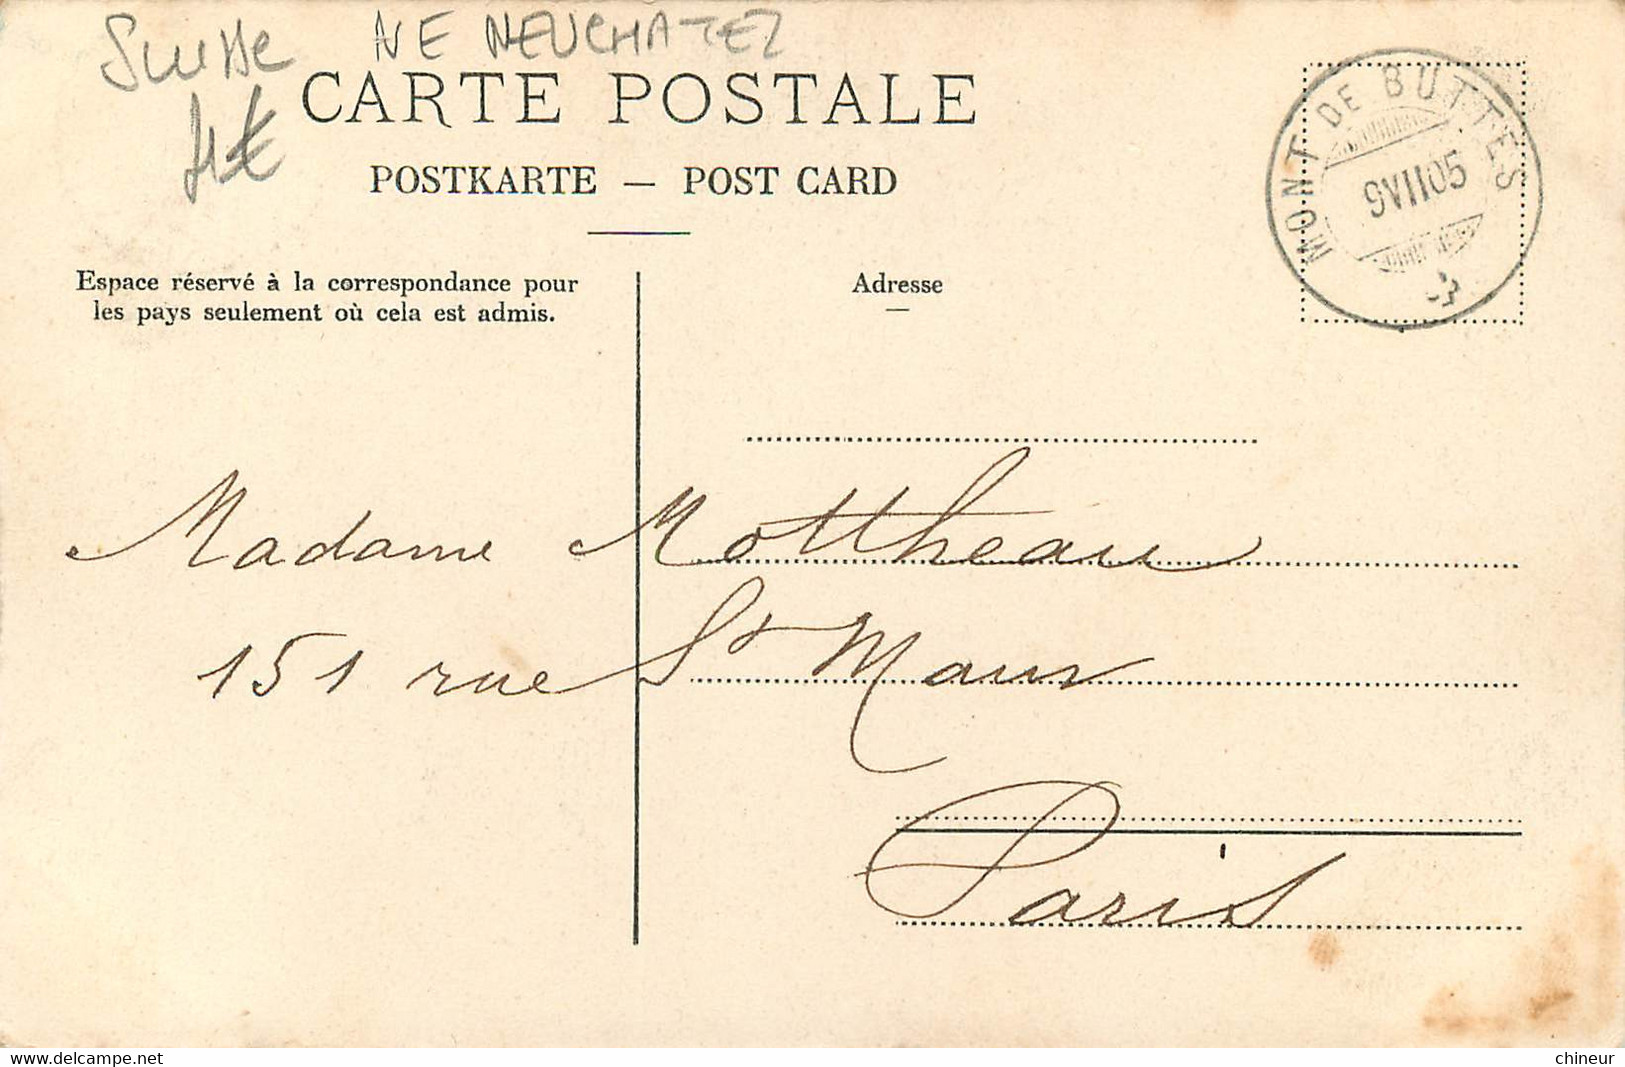 Suisse NE NEUCHATEL
4€
CARTE POSTALE
POSTKARTE — POST CARD
MONT DE BUTTES
9 VII 05
Espace réservé à la correspondance pour
les pays seulement où cela est admis.
Adresse
Madame Mottheau
151 rue St Maur
Paris
www.delcampe.net
chineur